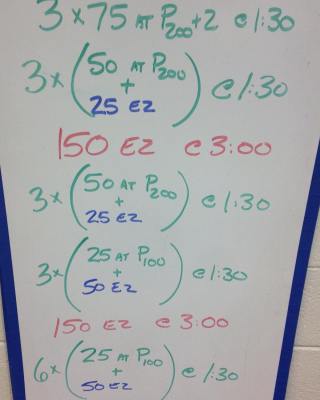 3 x 75 AT P200+2 @ 1:30
3x (50 AT P200
+
25 EZ) @ 1:30
150 EZ @ 3:00
3x (50 AT P200
+
25 EZ) @ 1:30
3x (25 AT P100
+
50 EZ) @ 1:30
150 EZ @ 3:00
6x (25 AT P100
+
50 EZ) @ 1:30